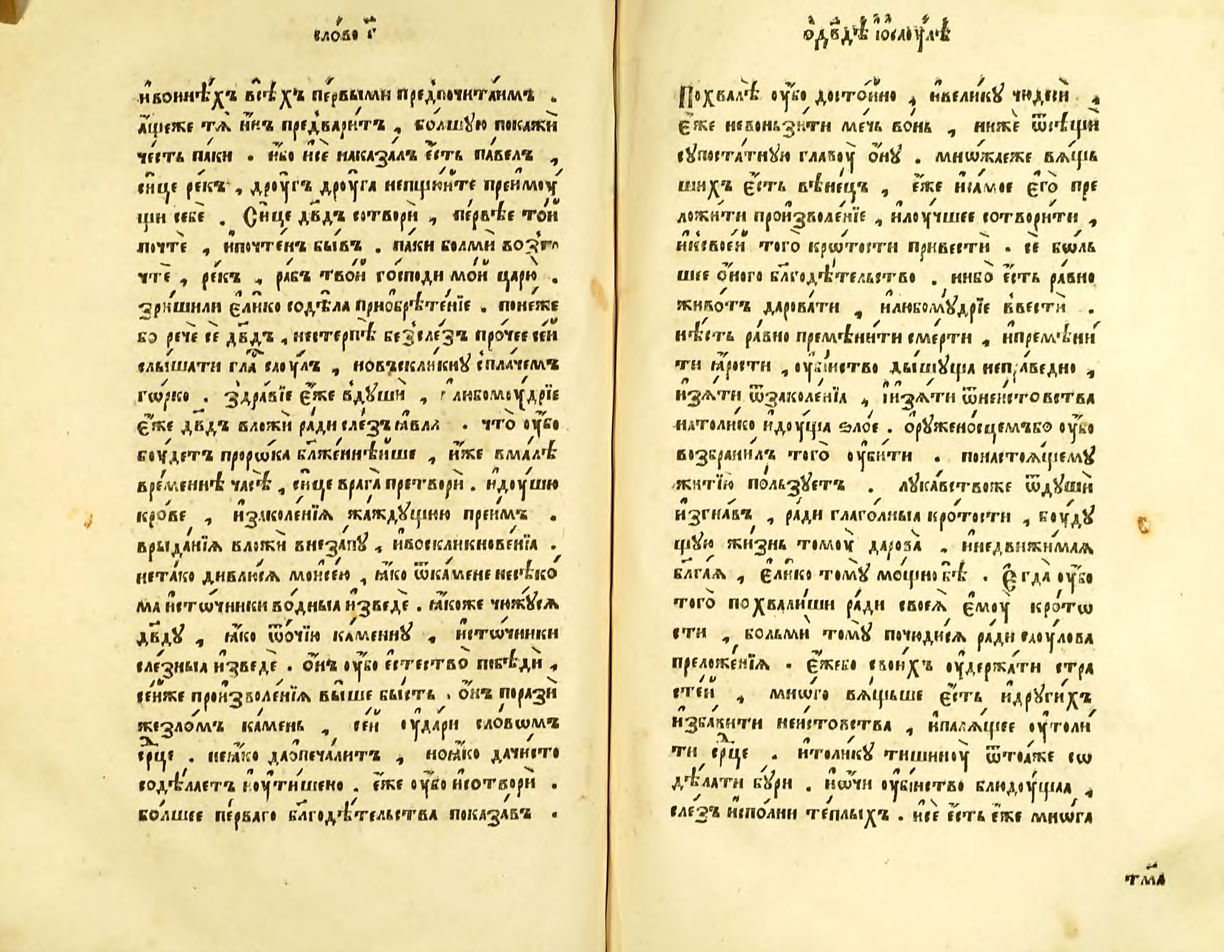 сло́во г҃
и҆вои́нѣхъ всѣ́хъ пе́рвыми предпочита́имъ .
а҆́щеже тѧ̀ и҆́нъ предвари́тъ , бо́лшꙋю покажѝ
че́сть па́ки . и҆́бо и҆сѐ наказа́лъ є҆́сть па́велъ ,
си́це ре́къ , дрꙋ́гъ дрꙋ́га непщꙋ́йте преимоу́
щи себѐ . Си́це дв҃дъ сотворѝ , пе́рвѣе то́й
почтѐ , и҆почте́нъ бы́въ . па́ки бо́лми
чтѐ , ре́къ , ра́бъ тво́й го́споди мо́й царю̀ .
зри́шили є҆ли́ко содѣ́ла приѡбрѣте́нїе . поне́же
бо речѐ сѐ дв҃дъ , нестерпѣ̀ безсле́зъ про́чее се́й
слы́шати гла́ саоу́лъ , новъскли́кнꙋ спла́чемъ
го́рко . здра́вїе є҆́же вдꙋшѝ , любомоу́дрїе
є҆́же дв҃дъ вложѝ ра́ди сле́зъ ꙗ҆влѧ̀ . что̀ оу҆́бо
боу́детъ проро́ка бл҃же́ннѣйше , и҆́же вма́лѣ
вре́меннѣ ча́сѣ , си́це врага̀ претворѝ . и҆доу́шю
кро́ве , и҆заколе́нїѧ жа́ждꙋщꙋю прее́мъ .
врыда́нїѧ вложѝ внеза́пꙋ , и҆воскликнове́нїа .
нета́ко дивлю́сѧ моисе́ю , ꙗ҆́ко ѿка́мене несѣ́ко
ма и҆сто́чники во́дныѧ и҆зведѐ . ꙗ҆́коже чю́жꙋсѧ
дв҃дꙋ , ꙗ҆́ко ѿо́чїю ка́меннꙋ , и҆сто́чники
сле́зныѧ и҆зведѐ . ѻ҆́нъ оу҆́бо є҆стество̀ побѣдѝ ,
се́йже произволе́нїѧ вы́ше бы́сть . ѻ҆́нъ поразѝ
жезло́мъ ка́мень , се́й оу҆да́ри сло́вомъ
ср҃це . неꙗ҆́ко даѡпеча́литъ , ноꙗ҆́ко дачи́сто
содѣ́лаетъ и҆оу҆ти́шено . є҆́же оу҆́бо и҆сотворѝ .
бо́лшее пе́рваго бл҃годѣ́тельства показа́въ .
ѡ҆дв҃дѣ и҆оса́оу́лѣ
Похва́лѣ оу҆́бо досто́йно , и҆вели́кꙋ чю́деси ,
є҆́же невоньзи́ти ме́чь во́нь , нижѐ ѿсѣщѝ
сꙋпоста́тнꙋю главоу̀ ѻ҆́нꙋ . мно́жаеже вѧ́щь
шихъ є҆́сть вѣне́цъ , є҆́же и҆са́мое є҆го̀ пре
ложи́ти произволе́нїе , и҆лоу́чшее сотвори́ти ,
и҆ксвое́й того̀ кро́тости привестѝ . сѐ бо́ль
шее ѻ҆́ного бл҃годѣ́тельство . ни́бо є҆́сть ра́вно
живо́тъ дарова́ти , и҆любомꙋ́дрїе ввестѝ .
нѣ́сть ра́вно премѣни́ти сме́рти , и҆премѣни́
ти ꙗ҆́рости , оу҆бі́йство ды́шꙋща непра́ведно ,
и҆зѧ́ти ѿзаколе́нїа , и҆изѧ́ти ѿнеи́стовства
натоли́ко и҆доу́ща ѕло́е . ѻ҆рꙋжено́сцемъбо оу҆́бо
возбрани́лъ того̀ оу҆би́ти . понастоѧ́щемꙋ
житїю̀ по́льзꙋетъ . лꙋка́вствоже ѿдꙋшѝ
и҆згна́въ , ра́ди глаго́лныѧ кро́тости , боу́дꙋ
щꙋю жи́знь томоу̀ дарова̀ . и҆недви́жимаѧ
бл҃га́ѧ , є҆ли́ко томꙋ̀ мо́щно бѣ̀ . Є҆гда̀ оу҆́бо
того̀ похва́лиши ра́ди своеѧ̀ є҆моу̀ кро́то
сти , бо́льми томꙋ̀ почюди́сѧ ра́ди саоу́лова
преложе́нїѧ . є҆́жебо свои́хъ оу҆держа́ти стра
сте́й , мно́го вѧ́щьше є҆́сть и҆дрꙋги́хъ
и҆зба́вити неи́стовства , и҆палѧ́щее оу҆толи́
ти ср҃це . и҆толи́кꙋ тишиноу̀ ѿтоѧ́же со
дѣ́лати бꙋ́ри . и҆о҆́чи оу҆бі́йство блюдоу́щаѧ ,
сле́зъ и҆спо́лни те́плыхъ . и҆сѐ є҆́сть є҆́же мно́га
тмѧ